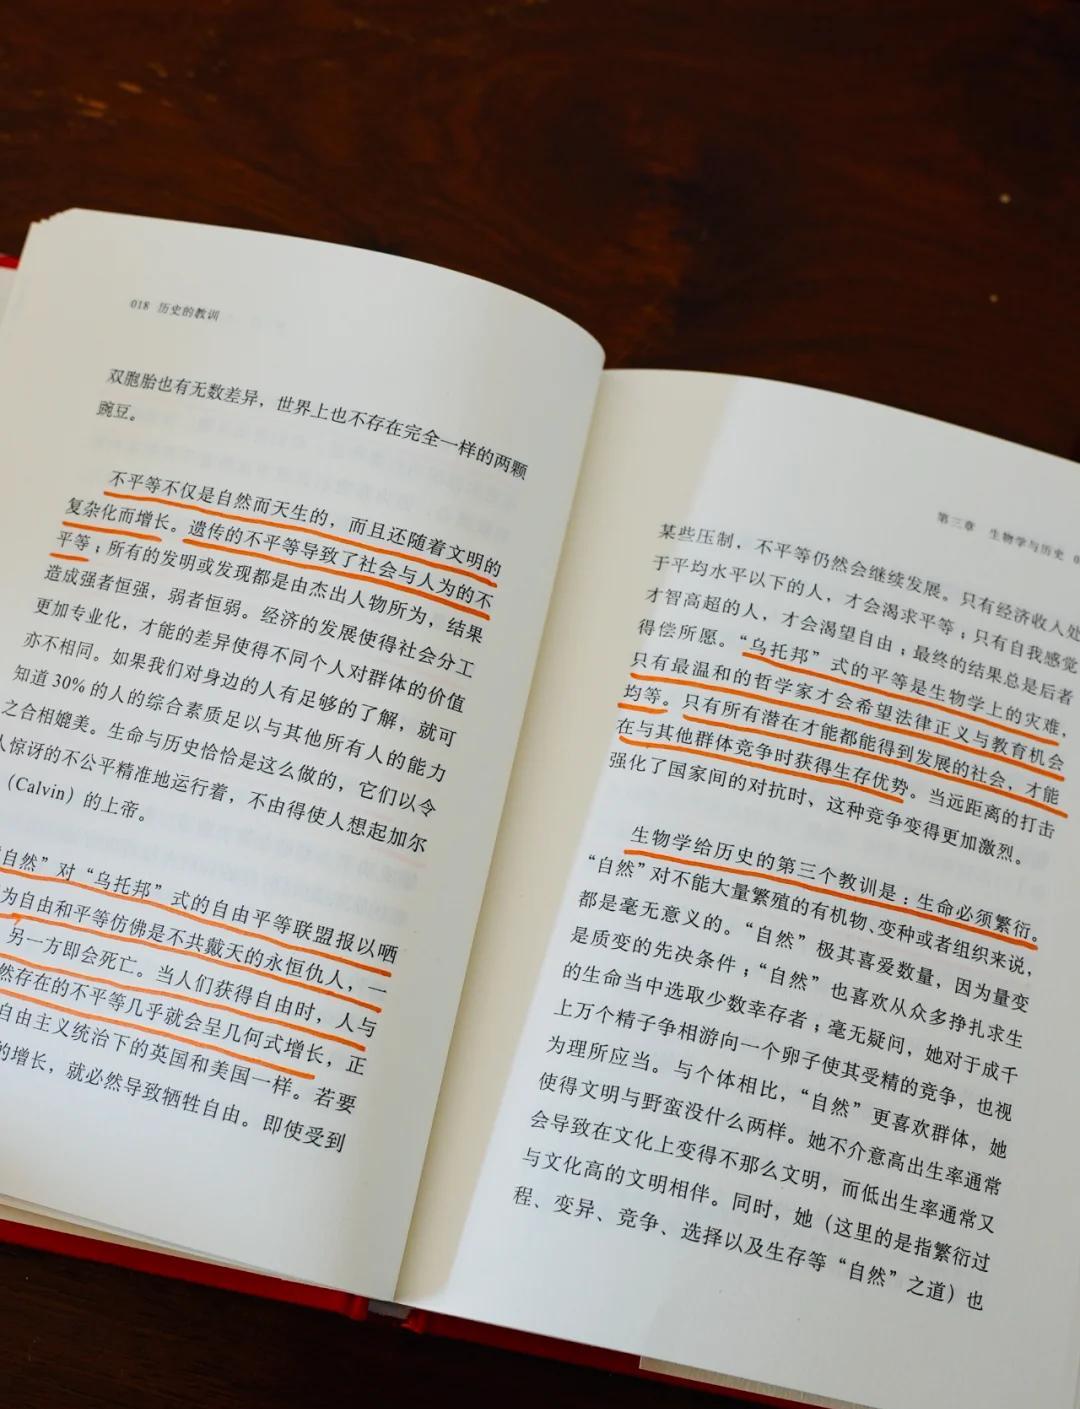 018 历史的教训
双胞胎也有无数差异，世界上也不存在完全一样的两颗
豌豆。
不平等不仅是自然而天生的，而且还随着文明的
复杂化而增长。遗传的不平等导致了社会与人为的不
平等；所有的发明或发现都是由杰出人物所为，结果
造成强者恒强，弱者恒弱。经济的发展使得社会分工
更加专业化，才能的差异使得不同个人对群体的价值
亦不相同。如果我们对身边的人有足够的了解，就可
知道30%的人的综合素质足以与其他所有人的能力
之合相媲美。生命与历史恰恰是这么做的，它们以令
人惊讶的不公平精准地运行着，不由得使人想起加尔
（Calvin）的上帝。
自然”对“乌托邦”式的自由平等联盟报以哂
为自由和平等仿佛是不共戴天的永恒仇人，一
另一方即会死亡。当人们获得自由时，人与
然存在的不平等几乎就会呈几何式增长，正
自由主义统治下的英国和美国一样。若要
的增长，就必然导致牺牲自由。即使受到
第三章 生物学与历史 0
某些压制，不平等仍然会继续发展。只有经济收入处
于平均水平以下的人，才会渴求平等；只有自我感觉
才智高超的人，才会渴望自由；最终的结果总是后者
得偿所愿。“乌托邦”式的平等是生物学上的灾难，
只有最温和的哲学家才会希望法律正义与教育机会
均等。只有所有潜在才能都能得到发展的社会，才能
在与其他群体竞争时获得生存优势。当远距离的打击
强化了国家间的对抗时，这种竞争变得更加激烈。
生物学给历史的第三个教训是：生命必须繁衍。
“自然”对不能大量繁殖的有机物、变种或者组织来说，
都是毫无意义的。“自然”极其喜爱数量，因为量变
是质变的先决条件；“自然”也喜欢从众多挣扎求生
的生命当中选取少数幸存者；毫无疑问，她对于成千
上万个精子争相游向一个卵子使其受精的竞争，也视
为理所应当。与个体相比，“自然”更喜欢群体，她
使得文明与野蛮没什么两样。她不介意高出生率通常
会导致在文化上变得不那么文明，而低出生率通常又
与文化高的文明相伴。同时，她（这里的是指繁衍过
程、变异、竞争、选择以及生存等“自然”之道）也